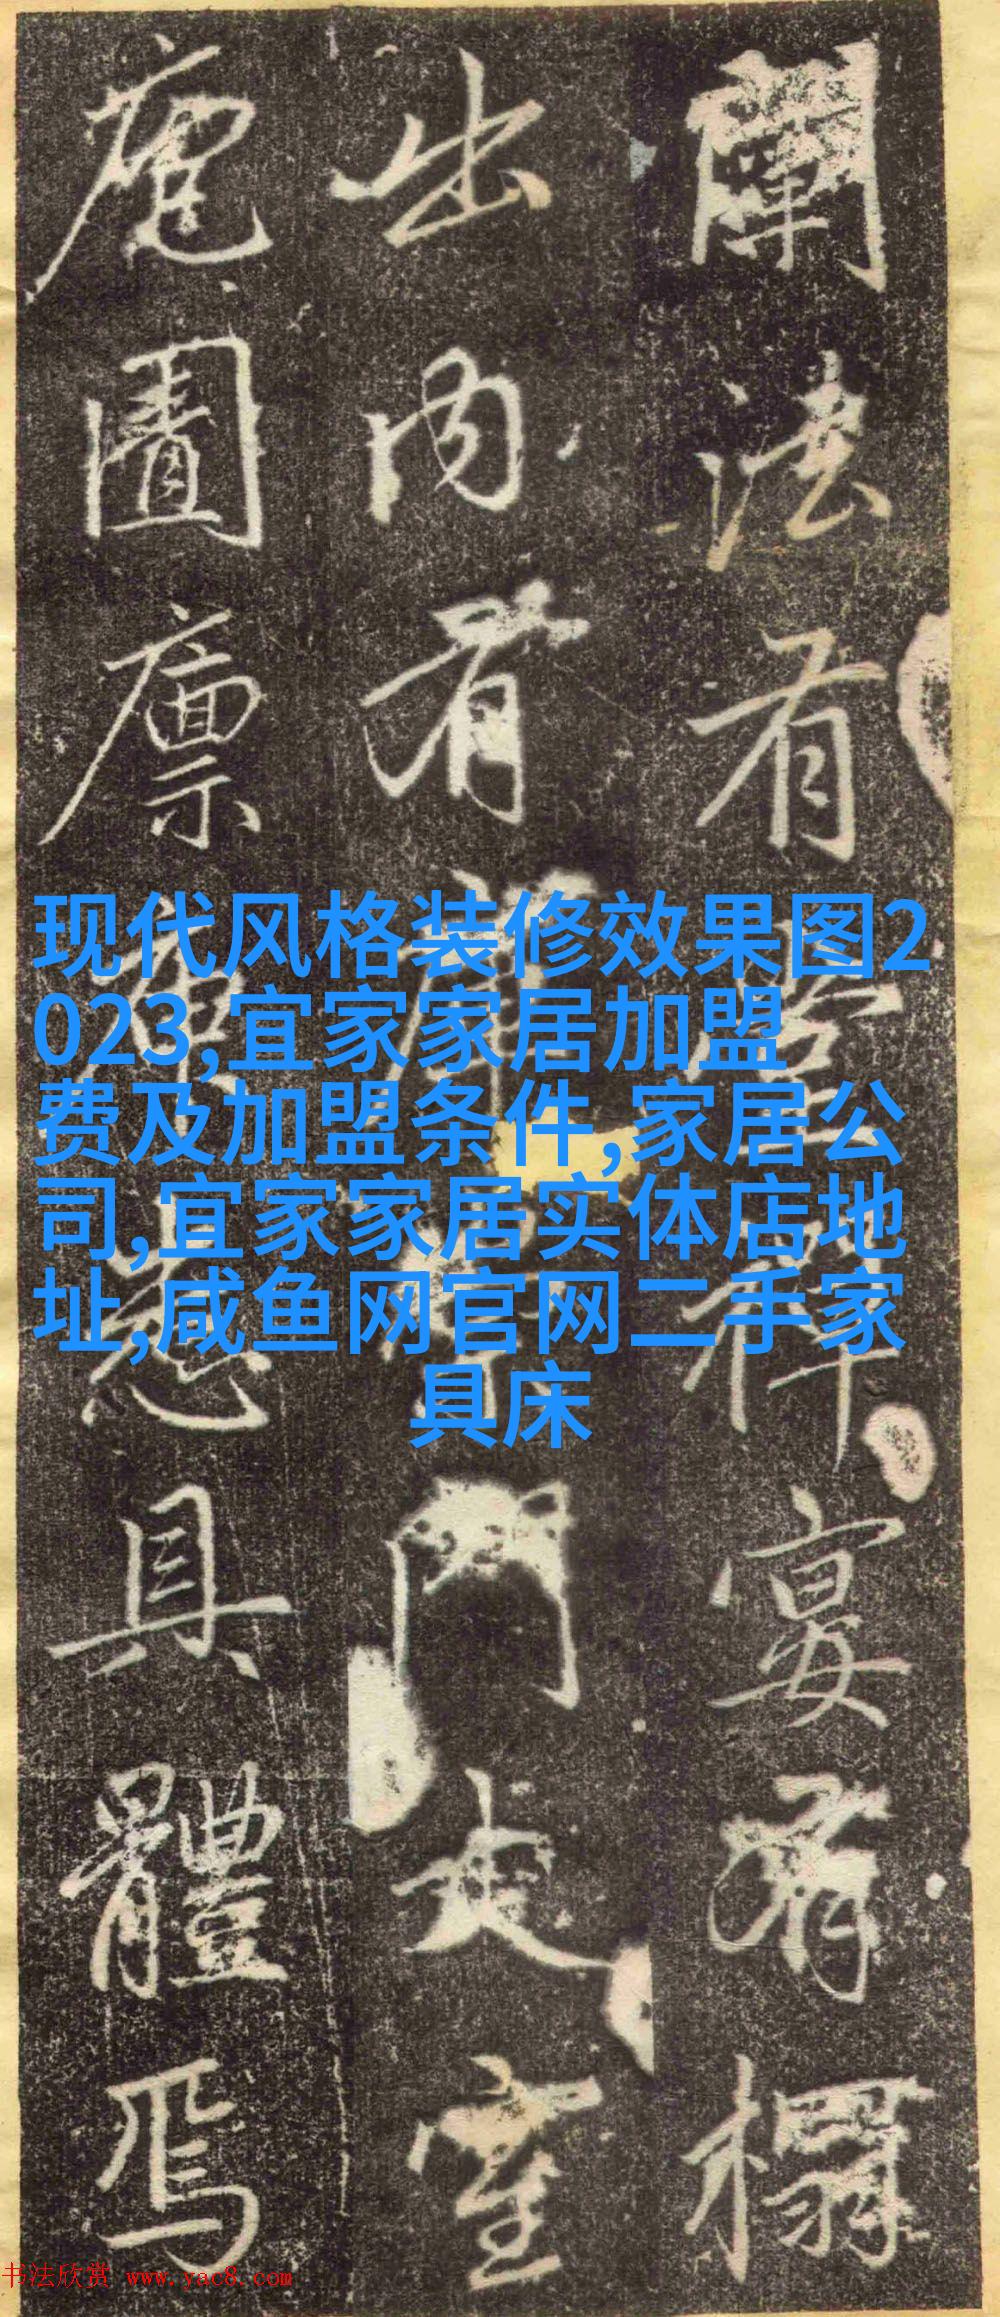 闡法有堂釋宴有榻
出內有廊
門走室
庖圖廪
悉具體焉
现代风格装修效果图2
023,宜家家居加盟
费及加盟条件,家居公
司,宜家家居实体店地
址,咸鱼网官网二手家
具床
书法欣赏 www.yac8.com